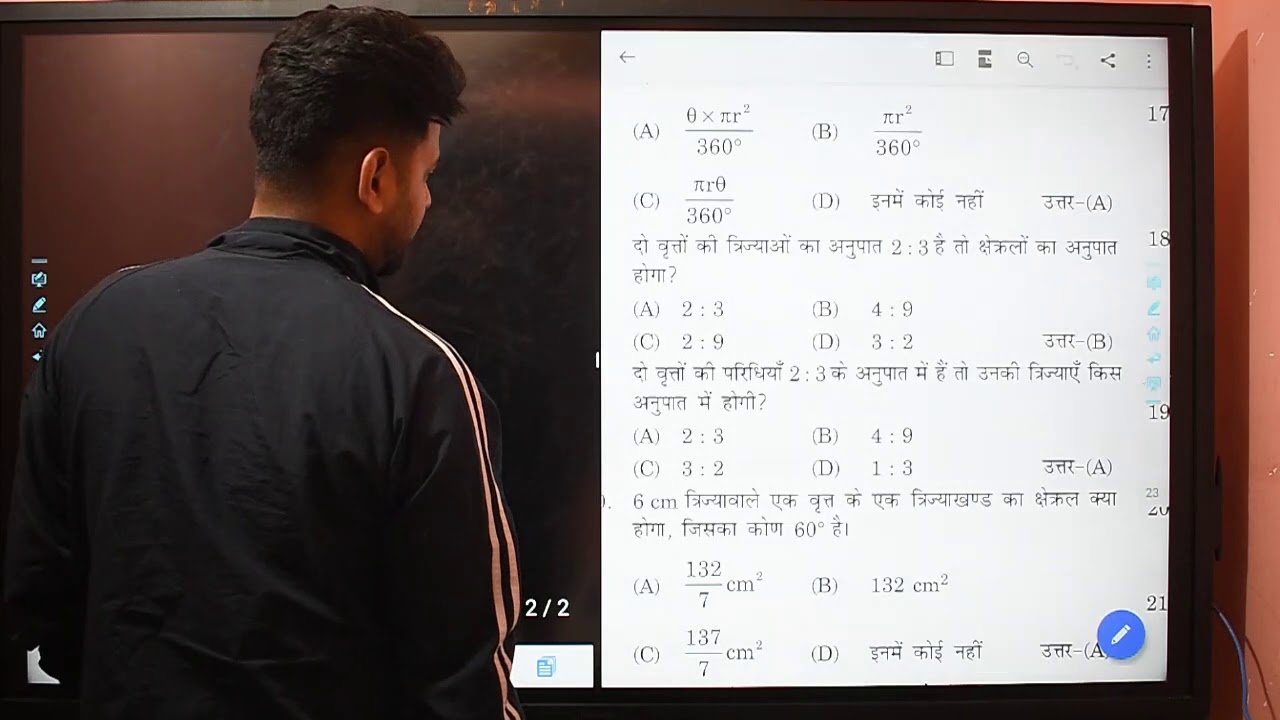 (A) θ × πr² / 360° (B) πr² / 360°
(C) πrθ / 360° (D) इनमें कोई नहीं उत्तर–(A)
दो वृत्तों की त्रिज्याओं का अनुपात 2 : 3 है तो क्षेत्रफलों का अनुपात
होगा?
(A) 2 : 3 (B) 4 : 9
(C) 2 : 9 (D) 3 : 2 उत्तर–(B)
दो वृत्तों की परिधियाँ 2 : 3 के अनुपात में हैं तो उनकी त्रिज्याएँ किस
अनुपात में होगी?
(A) 2 : 3 (B) 4 : 9
(C) 3 : 2 (D) 1 : 3 उत्तर–(A)
6 cm त्रिज्यावाले एक वृत्त के एक त्रिज्याखण्ड का क्षेत्रफल क्या
होगा, जिसका कोण 60° है।
(A) 132/7 cm² (B) 132 cm²
(C) 137/7 cm² (D) इनमें कोई नहीं उत्तर–(A)
17
18
19
23
20
21
2 / 2